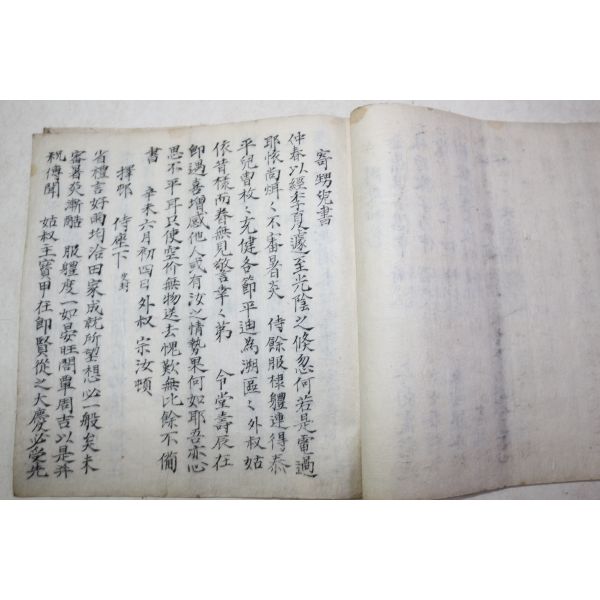 寄甥兒書
仲春以經季夏遽至光陰之倏忽何若是電過
耶悵尚烱〻不審暑炎 侍餘服棣軆連得泰
平兒曹枚〻充健各節平迪爲溯區〻外叔姑
依昔樣而眷無見警幸〻第 令堂壽辰在
卽遇喜增感他人或有汝之情勢果何如耶吾亦心
思不平耳只使空价無物送去愧歎無比餘不備
書
辛未六月初四日外叔 宗汝頓
擇鄕 侍座下
省禮言好雨均洽田家成就所望想必一般矣未
審暑炎漸酷 服軆度一如晏旺閤覃周吉以是并
祝傳聞 姑叔主寶甲在卽賢從之大慶必受先